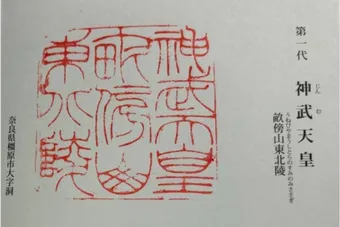 第一代 神武天皇
じんむ
畝傍山東北陵
うねびやまのうしとらのすみのみささぎ
神武天皇
畝傍山
東北陵
奈良県橿原市大字洞